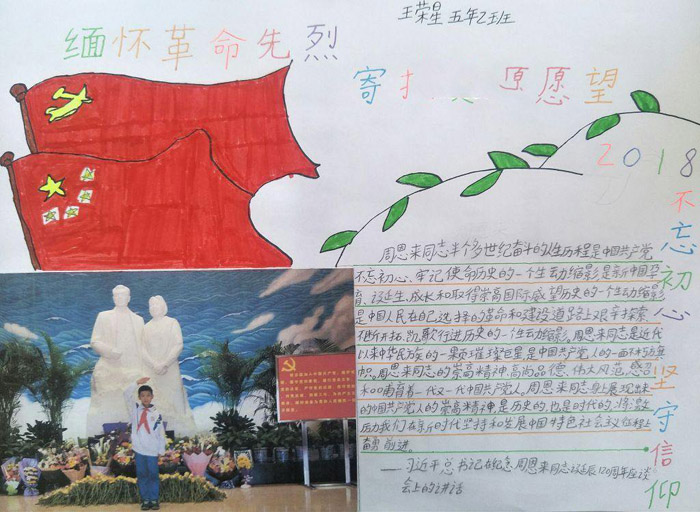 王荣星 五年2班
缅怀革命先烈
寄扌 愿愿望
2018
不忘初心
坚守信仰
周恩来同志半个多世纪奋斗的人生历程是中国共产党
不忘初心、牢记使命历史的一个生动缩影是新中国孕
育、诞生、成长和取得崇高国际威望历史的一个生动缩影
是中国人民在自己选择的革命和建设道路上艰辛探索、
不断开拓、凯歌行进历史的一个生动缩影。周恩来同志是近代
以来中华民族的一颗璀璨巨星是中国共产党人的一面不朽旗
帜。周恩来同志的崇高精神、高尚品德、伟大风范,感召
和哺育着一代又一代中国共产党人。周恩来同志身上展现出来
的中国共产党人的崇高精神是历史的,也是时代的,将激
励我们在新时代坚持和发展中国特色社会主义征程上
奋勇前进。
——习近平总书记在纪念周恩来同志诞辰120周年座谈
会上的讲话